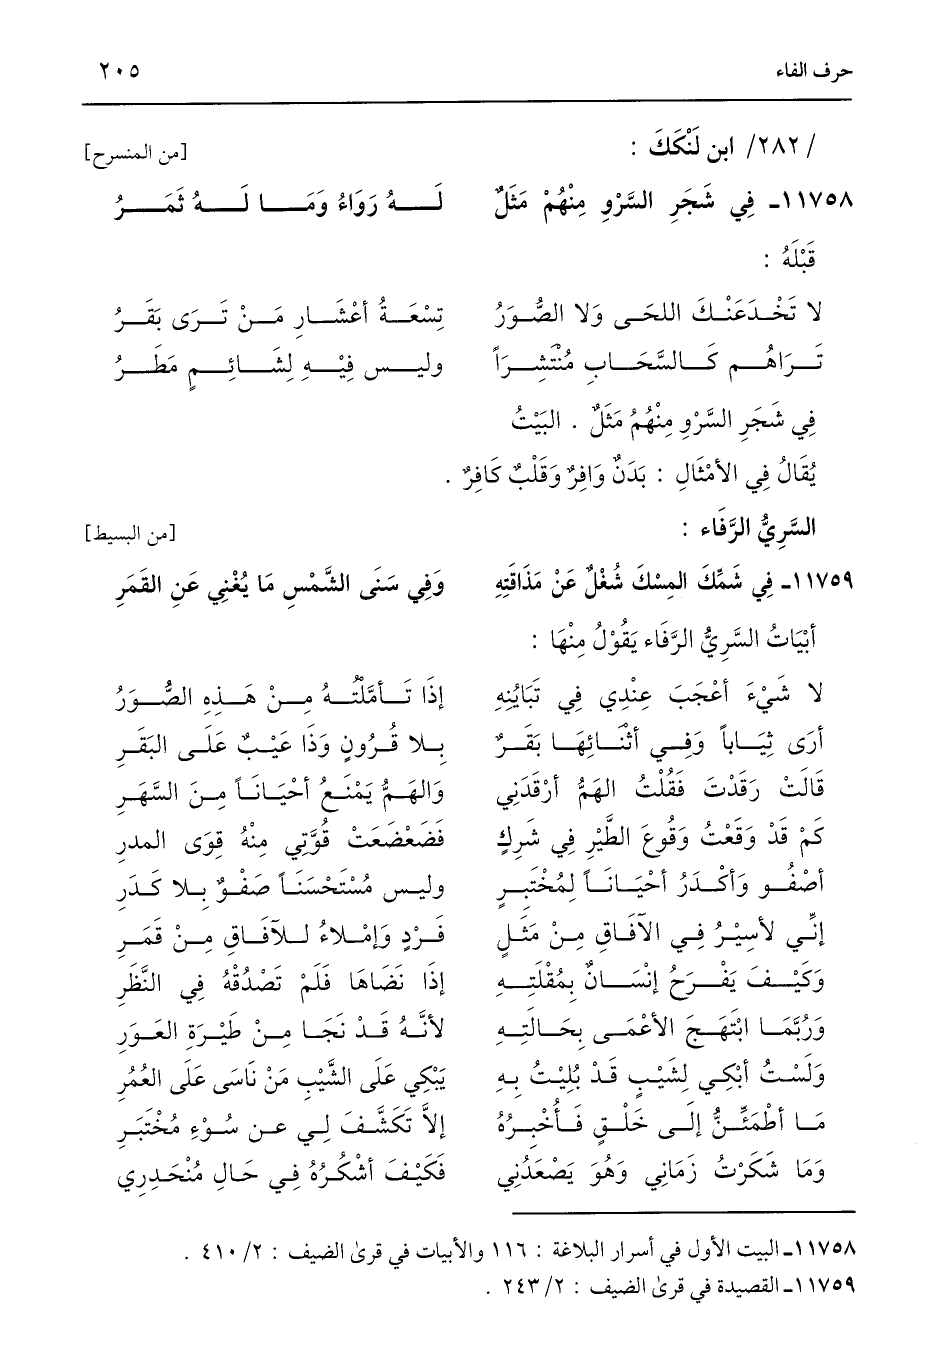 حرف الفاء ٢٠٥
/ ٢٨٢/ ابن لَنْكَكَ : [من المنسرح]
١١٧٥٨ـ فِي شَجَرِ السَّرْوِ مِنْهُمْ مَثَلٌ لَهُ رَوَاءُ وَمَا لَهُ ثَمَرُ
قَبْلَهُ :
لا تَخْدَعَنْكَ اللحَى وَلا الصُّوَرُ تِسْعَةُ أعْشَارِ مَنْ تَرَى بَقَرُ
تَرَاهُم كَالسَّحَابِ مُنْتَشِراً وليس فِيْهِ لِشَائِمٍ مَطَرُ
فِي شَجَرِ السَّرْوِ مِنْهُمُ مَثَلٌ . البَيْتُ
يُقَالُ فِي الأمْثَالِ : بَدَنٌ وَافِرٌ وَقَلْبٌ كَافِرٌ .
السَّرِيُّ الرَّفَاء : [من البسيط]
١١٧٥٩ـ فِي شَمِّكَ المِسْكَ شُغْلٌ عَنْ مَذَاقَتِهِ وَفِي سَنَى الشَّمْسِ مَا يُغْنِي عَنِ القَمَرِ
أبْيَاتُ السَّرِيُّ الرَّفَاء يَقُوْلُ مِنْهَا :
لا شَيْءَ أعْجَبَ عِنْدِي فِي تَبَايُنِهِ إذَا تَأمَّلْتُهُ مِنْ هَذِهِ الصُّوَرُ
أرَى ثِيَاباً وَفِي أثْنَائِهَا بَقَرٌ بِلا قُرُونٍ وَذَا عَيْبٌ عَلَى البَقَرِ
قَالَتْ رَقَدْتَ فَقُلْتُ الهَمُّ أرْقَدَنِي وَالهَمُّ يَمْنَعُ أحْيَاناً مِنَ السَّهَرِ
كَمْ قَدْ وَقَعْتُ وَقُوعَ الطَّيْرِ فِي شَرِكٍ فَضَعْضَعَتْ قُوَّتِي مِنْهُ قِوَى المدرِ
أصْفُو وَأكْدَرُ أحْيَاناً لِمُخْتَبِرٍ وليس مُسْتَحْسَناً صَفْوٌ بِلا كَدَرِ
إنِّي لأسِيْرُ فِي الآفَاقِ مِنْ مَثَلٍ فَرْدٍ وَإمْلاءُ لِلآفَاقِ مِنْ قَمَرِ
وَكَيْفَ يَفْرَحُ إنْسَانٌ بِمُقْلَتِهِ إذَا نَضَاهَا فَلَمْ تَصْدُقْهُ فِي النَّظَرِ
وَرُبَّمَا ابْتَهَجَ الأعْمَى بِحَالَتِهِ لأنَّهُ قَدْ نَجَا مِنْ طَيْرَةِ العَوَرِ
وَلَسْتُ أبْكِي لِشَيْبٍ قَدْ بُلِيْتُ بِهِ يَبْكِي عَلَى الشَّيْبِ مَنْ نَاسَى عَلَى العُمُرِ
مَا أطْمَئِنُّ إلَى خَلْقٍ فَأُخْبِرُهُ إلاَّ تَكَشَّفَ لِي عن سُوْءِ مُخْتَبَرِ
وَمَا شَكَرْتُ زَمَانِي وَهُوَ يَصْعَدُنِي فَكَيْفَ أشْكُرُهُ فِي حَالِ مُنْحَدِرِي
١١٧٥٨ـ البيت الأول في أسرار البلاغة : ١١٦ والأبيات في قرىٰ الضيف : ٢/ ٤١٠ .
١١٧٥٩ـ القصيدة في قرىٰ الضيف : ٢/ ٢٤٣ .